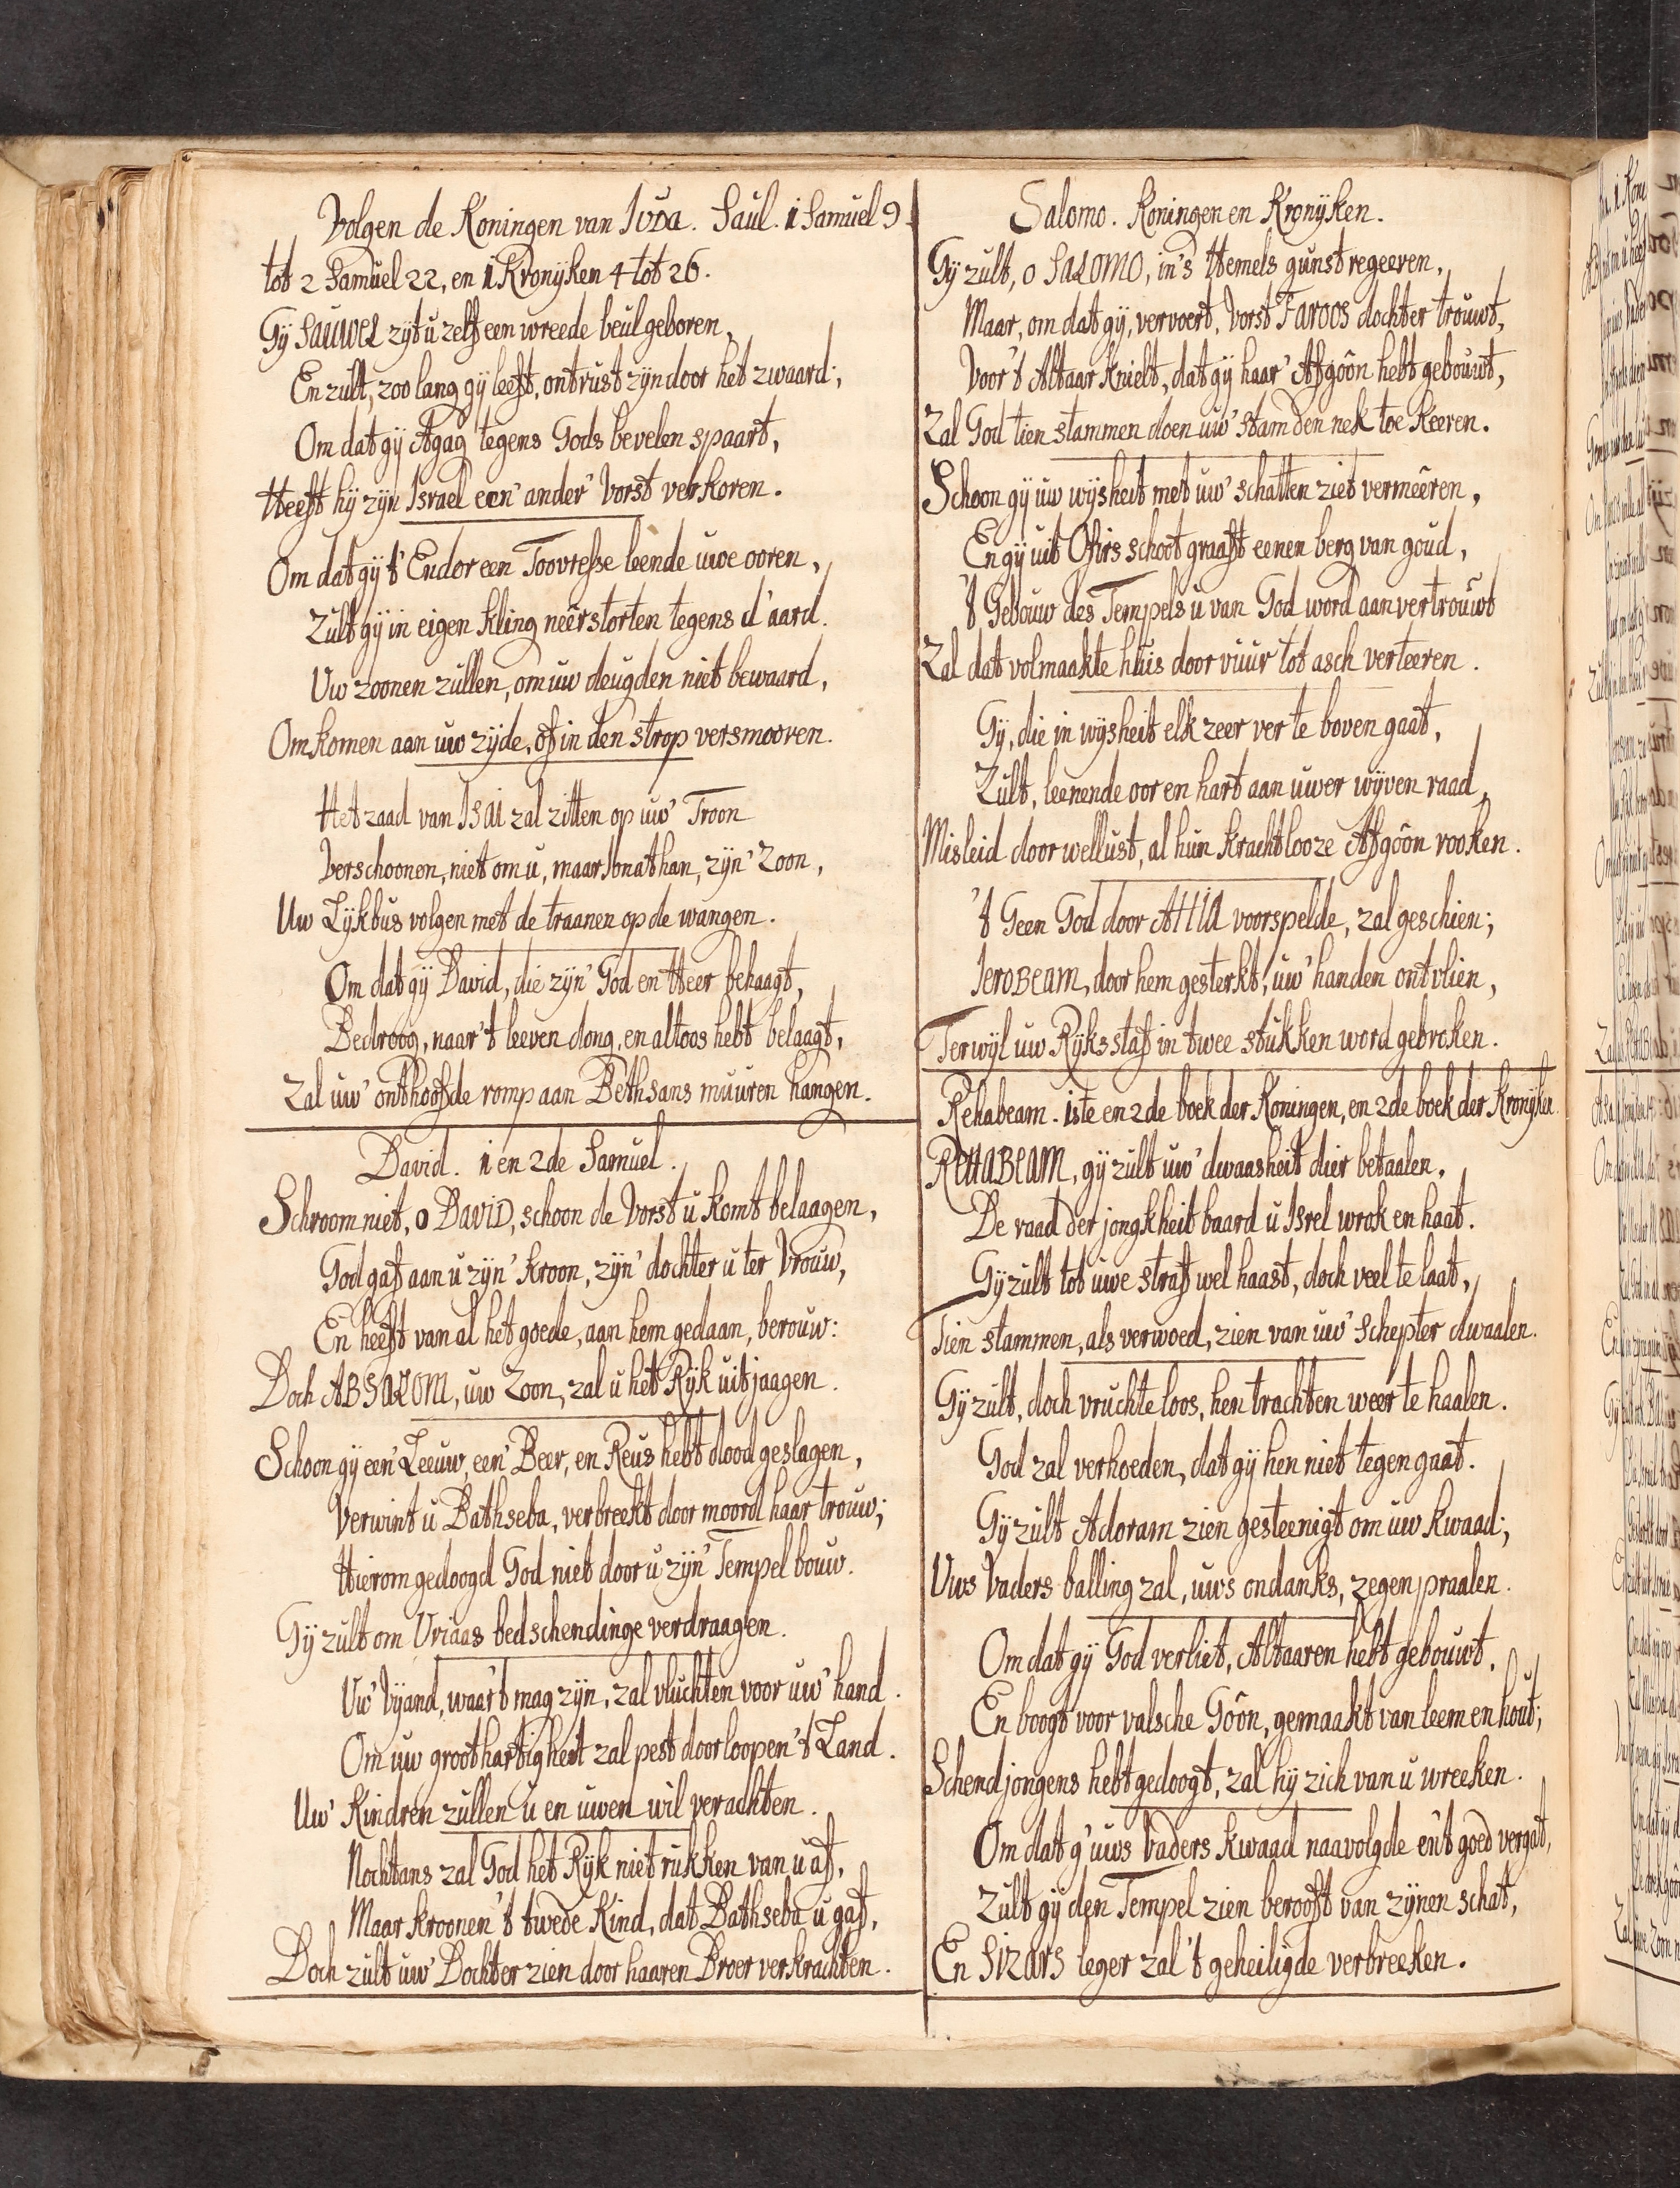 Volgen de Koningen van Juda. Saul. 1 Samuel 9.
tot 2 Samuel 22, en 1 Kronyken 4 tot 26.
Gy SAUWEL zyt u zelf een wreede beul geboren,
En zult, zoo lang gy leeft, ontrust zyn door het zwaard;
Om dat gy Agag tegens Gods bevelen spaart,
Heeft hy zyn Israel een' ander' Vorst verkoren.
Om dat gy t' Endor een Toovresse leende uwe ooren,
Zult gy in eigen kling neêrstorten tegens d'aard.
Uw zoonen zullen, om uw deugden niet bewaard,
Omkomen aan uw zyde, of in den strop versmooren.
Het zaad van ISAI zal zitten op uw' Troon
Verschoonen, niet om u, maar Jonathan, zyn' Zoon,
Uw Lykbus volgen met de traanen op de wangen.
Om dat gy David, die zyn' God en Heer behaagt,
Bedroog, naar 't leeven dong, en altoos hebt belaagt,
Zal uw' onthoofde romp aan Bethsans muuren hangen.
David. 1 en 2de Samuel.
Schroom niet, o DAVID, schoon de Vorst u komt belaagen,
God gaf aan u zyn' kroon, zyn' dochter u ter Vrouw,
En heeft van al het goede, aan hem gedaan, berouw:
Doch ABSALOM, uw Zoon, zal u het Ryk uitjaagen.
Schoon gy een' Leeuw, een' Beer, en Reus hebt dood geslagen,
Verwint u Bathseba, verbreekt door moord haar trouw;
Hierom gedoogd God niet door u zyn' Tempel bouw.
Gy zult om Uriaas bedschendinge verdraagen.
Uw' Vyand, waar 't mag zyn, zal vluchten voor uw' hand.
Om uw groothartigheit zal pest doorloopen 't Land.
Uw' Kindren zullen u en uwen wil verachten.
Nochtans zal God het Ryk niet rukken van u af,
Maar kroonen 't twede Kind, dat Bathseba u gaf,
Doch zult uw' Dochter zien door haaren Broer verkrachten.
Salomo. Koningen en Kronyken.
Gy zult, o SALOMO, in 's Hemels gunst regeeren,
Maar, om dat gy, vervoert, Vorst FAROOS dochter trouwt,
Voor 't Altaar knielt, dat gy haar' Afgôôn hebt gebouwt,
Zal God tien stammen doen uw' stam den nek toe keeren.
Schoon gy uw wysheit met uw' schatten ziet vermeêren,
En gy uit Ofirs schoot graaft eenen berg van goud,
't Gebouw des Tempels u van God word aanvertrouwt
Zal dat volmaakte huis door vuur tot asch verteeren.
Gy, die in wysheit elk zeer ver te boven gaat,
Zult, leenende oor en hart aan uwer wyven raad,
Misleid door wellust, al hun krachtlooze Afgôôn rooken.
't Geen God door AHIA voorspelde, zal geschien;
JEROBEAM, door hem gesterkt, uw' handen ontvlien,
Terwyl uw Ryksstaf in twee stukken word gebroken.
Rehabeam. 1ste en 2de boek der Koningen, en 2de boek der Kronyken
REHABEAM, gy zult uw' dwaasheit dier betaalen,
De raad der jongkheit baard u Isrel wrok en haat.
Gy zult tot uwe straf wel haast, doch veel te laat,
Tien stammen, als verwoed, zien van uw' Schepter dwaalen.
Gy zult, doch vruchteloos, hen trachten weer te haalen.
God zal verhoeden, dat gy hen niet tegen gaat.
Gy zult Adoram zien gesteenigt om uw kwaad;
Uws Vaders balling zal, uws ondanks, zegenpraalen.
Om dat gy God verliet, Altaaren hebt gebouwt,
En boogt voor valsche Gôôn, gemaakt van leem en hout;
Schendjongens hebt gedoogt, zal hy zich van u wreeken.
Om dat g' uws Vaders kwaad naavolgde en 't goed vergat,
Zult gy den Tempel zien berooft van zynen schat,
En SIZAKS leger zal 't geheiligde verbreeken.